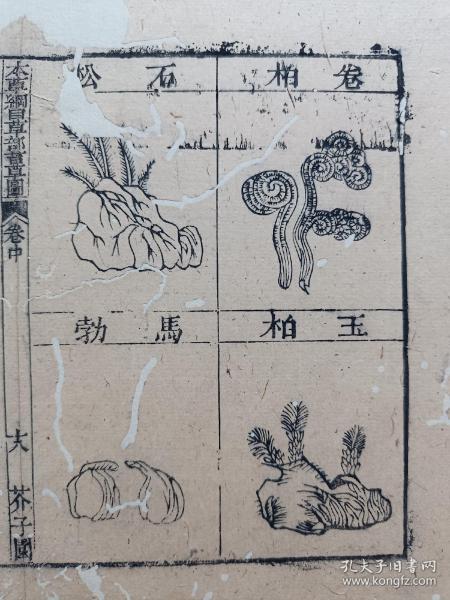 卷柏
石松
玉柏
馬勃
本草綱目草部圖
卷中
十八
芥子園
孔夫子旧书网
www.kongfz.com